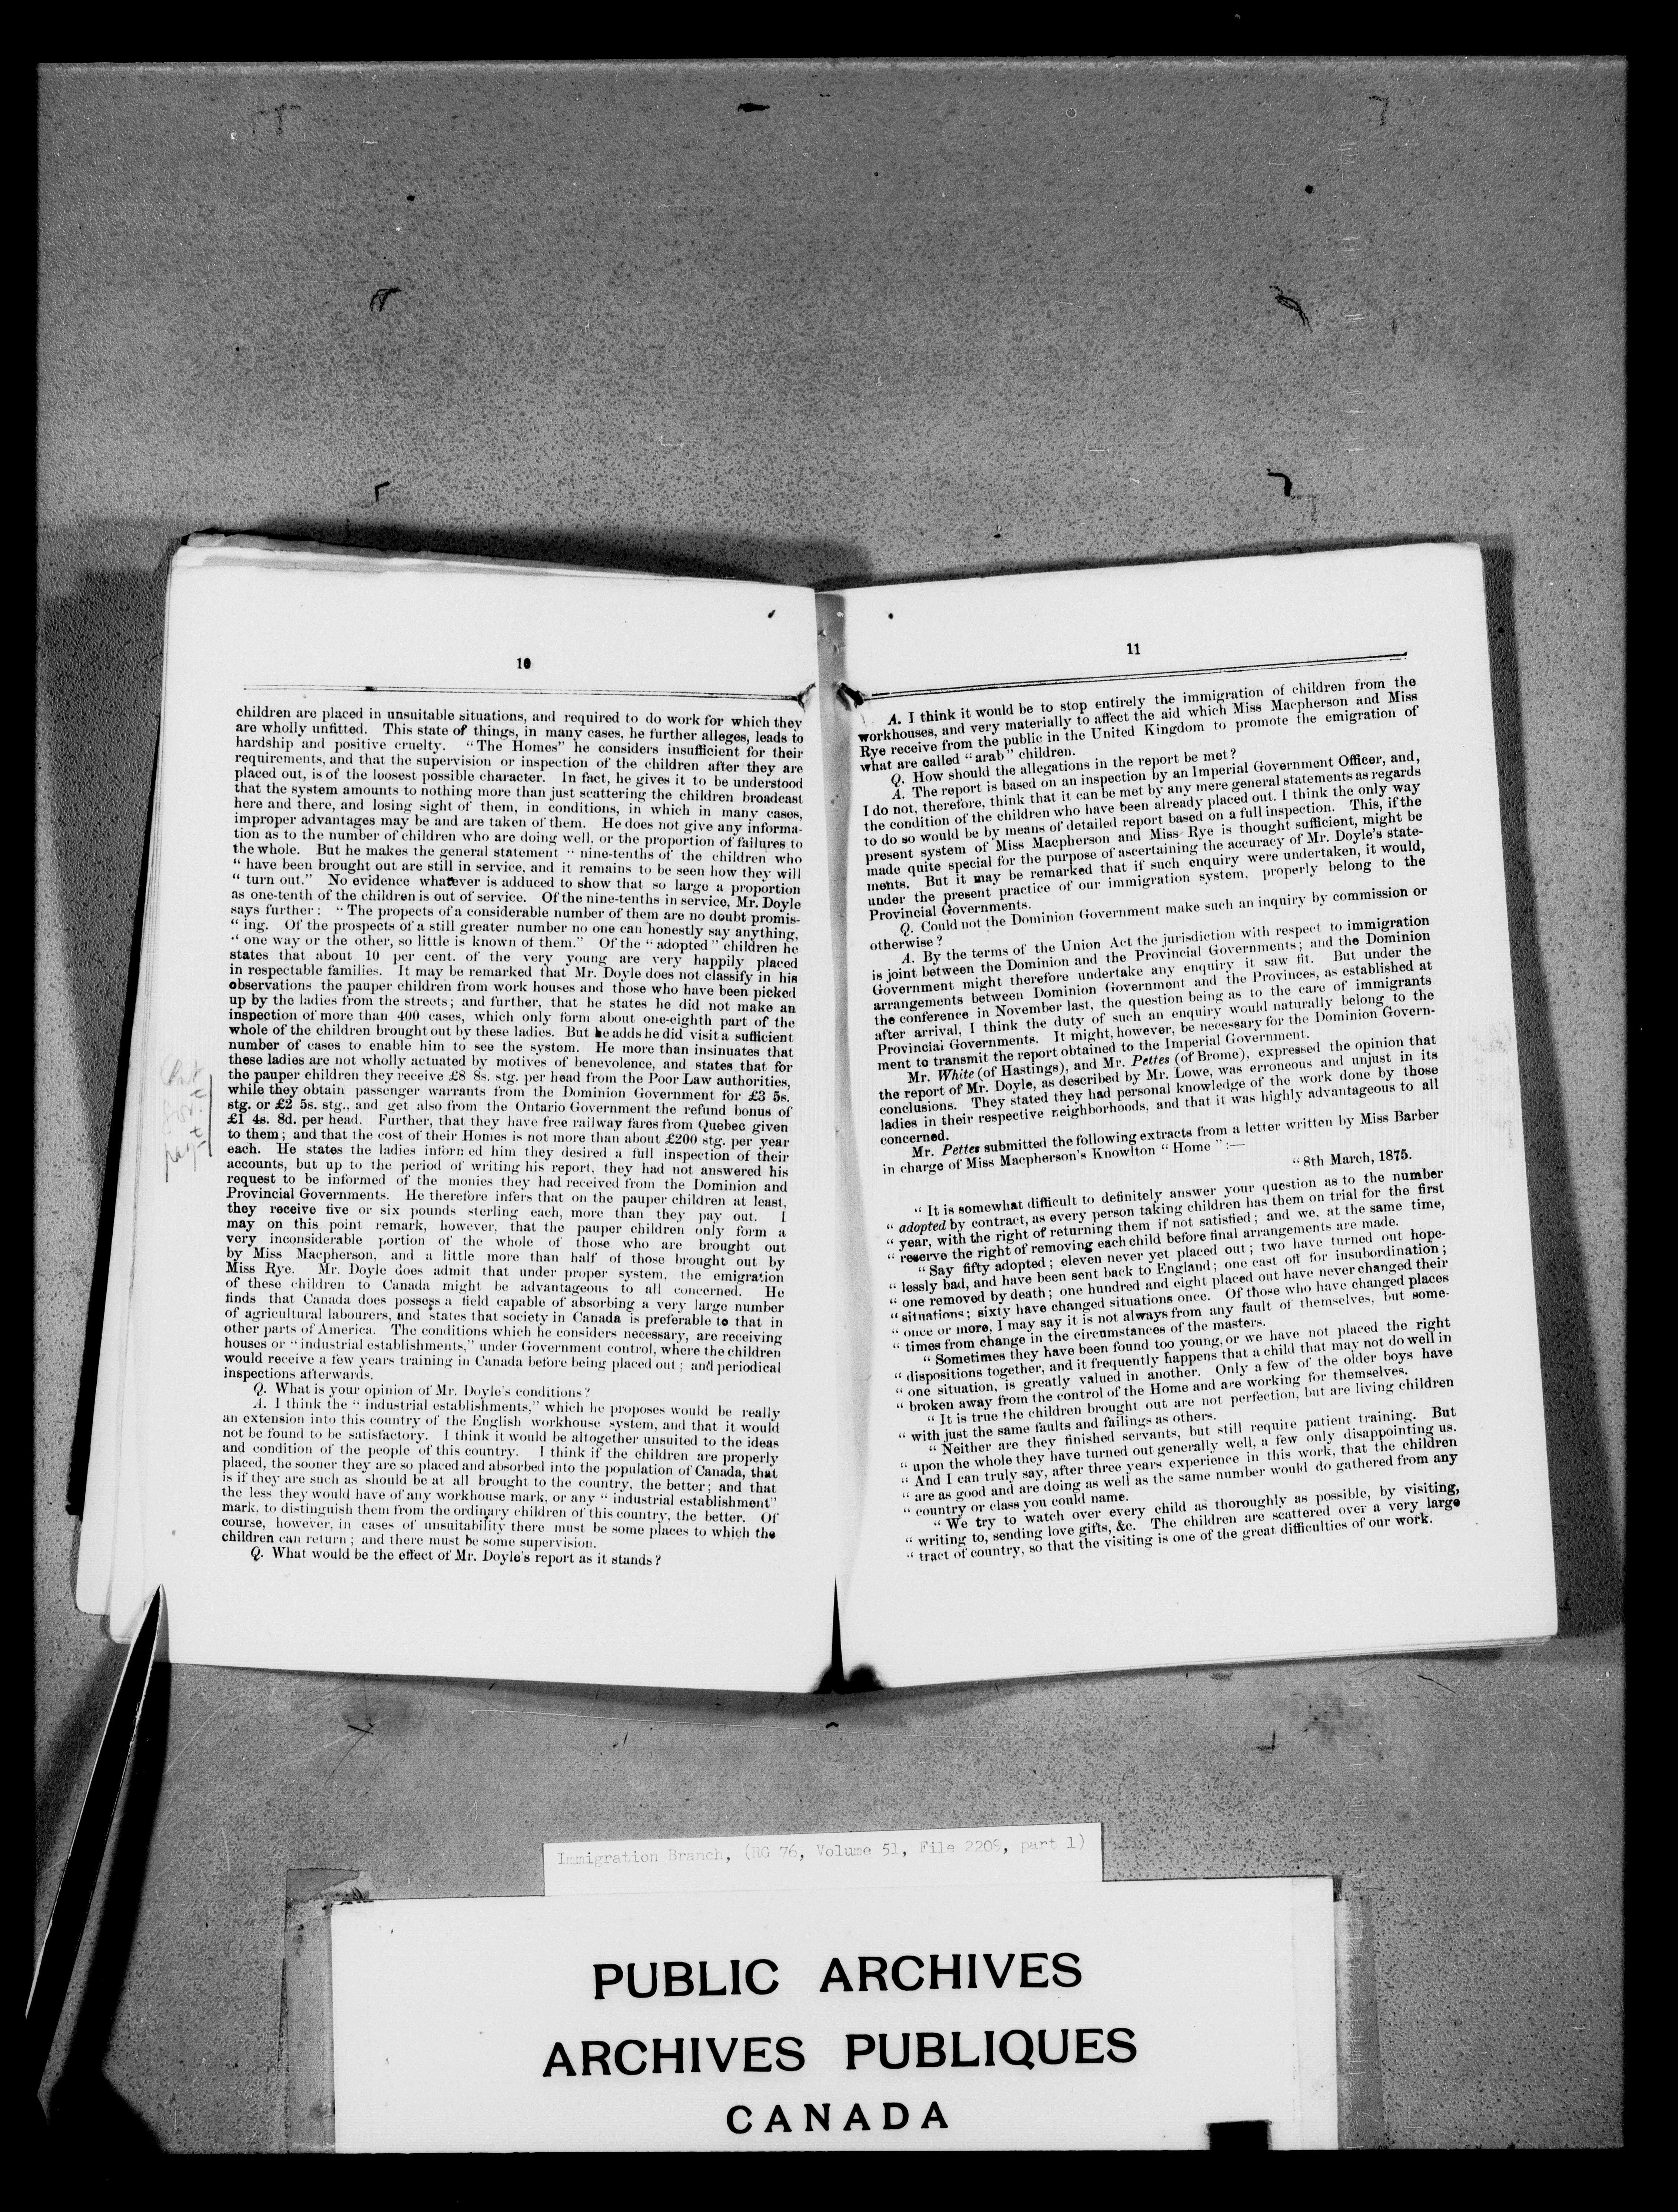 10
children are placed in unsuitable situations, and required to do work for which they
are wholly unfitted. This state of things, in many cases, he further alleges, leads to
hardship and positive cruelty. "The Homes" he considers insufficient for their
requirements, and that the supervision or inspection of the children after they are
placed out, is of the loosest possible character. In fact, he gives it to be understood
that the system amounts to nothing more than just scattering the children broadcast
here and there, and losing sight of them, in conditions, in which in many cases,
improper advantages may be and are taken of them. He does not give any informa-
tion as to the number of children who are doing well, or the proportion of failures to
the whole. But he makes the general statement "nine-tenths of the children who
" have been brought out are still in service, and it remains to be seen how they will
" turn out." No evidence whatever is adduced to show that so large a proportion
as one-tenth of the children is out of service. Of the nine-tenths in service, Mr. Doyle
says further: "The propects of a considerable number of them are no doubt promis-
" ing. Of the prospects of a still greater number no one can honestly say anything,
" one way or the other, so little is known of them." Of the "adopted" children he
states that about 10 per cent. of the very young are very happily placed
in respectable families. It may be remarked that Mr. Doyle does not classify in his
observations the pauper children from work houses and those who have been picked
up by the ladies from the streets; and further, that he states he did not make an
inspection of more than 400 cases, which only form about one-eighth part of the
whole of the children brought out by these ladies. But he adds he did visit a sufficient
number of cases to enable him to see the system. He more than insinuates that
these ladies are not wholly actuated by motives of benevolence, and states that for
the pauper children they receive £8 8s. stg. per head from the Poor Law authorities,
while they obtain passenger warrants from the Dominion Government for £3 5s.
stg. or £2 5s. stg., and get also from the Ontario Government the refund bonus of
£1 4s. 8d. per head. Further, that they have free railway fares from Quebec given
to them; and that the cost of their Homes is not more than about £200 stg. per year
each. He states the ladies informed him they desired a full inspection of their
accounts, but up to the period of writing his report, they had not answered his
request to be informed of the monies they had received from the Dominion and
Provincial Governments. He therefore infers that on the pauper children at least,
they receive five or six pounds sterling each, more than they pay out. I
may on this point remark, however, that the pauper children only form a
very inconsiderable portion of the whole of those who are brought out
by Miss Macpherson, and a little more than half of those brought out by
Miss Rye. Mr. Doyle does admit that under proper system, the emigration
of these children to Canada might be advantageous to all concerned. He
finds that Canada does possess a field capable of absorbing a very large number
of agricultural labourers, and states that society in Canada is preferable to that in
other parts of America. The conditions which he considers necessary, are receiving
houses or "industrial establishments," under Government control, where the children
would receive a few years training in Canada before being placed out; and periodical
inspections afterwards.
Q. What is your opinion of Mr. Doyle's conditions?
A. I think the "industrial establishments," which he proposes would be really
an extension into this country of the English workhouse system, and that it would
not be found to be satisfactory. I think it would be altogether unsuited to the ideas
and condition of the people of this country. I think if the children are properly
placed, the sooner they are so placed and absorbed into the population of Canada, that
is if they are such as should be at all brought to the country, the better; and that
the less they would have of any workhouse mark, or any "industrial establishment"
mark, to distinguish them from the ordinary children of this country, the better. Of
course, however, in cases of unsuitability there must be some places to which the
children can return; and there must be some supervision.
Q. What would be the effect of Mr. Doyle's report as it stands?
11
A. I think it would be to stop entirely the immigration of children from the
workhouses, and very materially to affect the aid which Miss Macpherson and Miss
Rye receive from the public in the United Kingdom to promote the emigration of
what are called "arab" children.
Q. How should the allegations in the report be met?
A. The report is based on an inspection by an Imperial Government Officer, and,
I do not, therefore, think that it can be met by any mere general statements as regards
the condition of the children who have been already placed out. I think the only way
to do so would be by means of detailed report based on a full inspection. This, if the
present system of Miss Macpherson and Miss Rye is thought sufficient, might be
made quite special for the purpose of ascertaining the accuracy of Mr. Doyle's state-
ments. But it may be remarked that if such enquiry were undertaken, it would,
under the present practice of our immigration system, properly belong to the
Provincial Governments.
Q. Could not the Dominion Government make such an inquiry by commission or
otherwise?
A. By the terms of the Union Act the jurisdiction with respect to immigration
is joint between the Dominion and the Provincial Governments; and the Dominion
Government might therefore undertake any enquiry it saw fit. But under the
arrangements between Dominion Government and the Provinces, as established at
the conference in November last, the question being as to the care of immigrants
after arrival, I think the duty of such an enquiry would naturally belong to the
Provincial Governments. It might, however, be necessary for the Dominion Govern-
ment to transmit the report obtained to the Imperial Government.
Mr. White (of Hastings), and Mr. Pettes (of Brome), expressed the opinion that
the report of Mr. Doyle, as described by Mr. Lowe, was erroneous and unjust in its
conclusions. They stated they had personal knowledge of the work done by those
ladies in their respective neighborhoods, and that it was highly advantageous to all
concerned.
Mr. Pettes submitted the following extracts from a letter written by Miss Barber
in charge of Miss Macpherson's Knowlton "Home":—
"8th March, 1875.
" It is somewhat difficult to definitely answer your question as to the number
" adopted by contract, as every person taking children has them on trial for the first
" year, with the right of returning them if not satisfied; and we, at the same time,
" reserve the right of removing each child before final arrangements are made.
" Say fifty adopted; eleven never yet placed out; two have turned out hope-
" lessly bad, and have been sent back to England; one cast off for insubordination;
" one removed by death; one hundred and eight placed out have never changed their
" situations; sixty have changed situations once. Of those who have changed places
" once or more, I may say it is not always from any fault of themselves, but some-
" times from change in the circumstances of the masters.
" Sometimes they have been found too young, or we have not placed the right
" dispositions together, and it frequently happens that a child that may not do well in
" one situation, is greatly valued in another. Only a few of the older boys have
" broken away from the control of the Home and are working for themselves.
" It is true the children brought out are not perfection, but are living children
" with just the same faults and failings as others.
" Neither are they finished servants, but still require patient training. But
" upon the whole they have turned out generally well, a few only disappointing us.
" And I can truly say, after three years experience in this work, that the children
" are as good and are doing as well as the same number would do gathered from any
" country or class you could name.
" We try to watch over every child as thoroughly as possible, by visiting,
" writing to, sending love gifts, &c. The children are scattered over a very large
" tract of country, so that the visiting is one of the great difficulties of our work.
Immigration Branch, (RG 76, Volume 51, File 2209, part 1)
PUBLIC ARCHIVES
ARCHIVES PUBLIQUES
CANADA